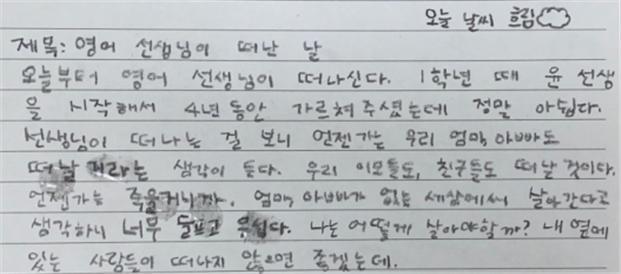 오늘 날씨 흐림
제목: 영어 선생님이 떠난 날
오늘부터 영어 선생님이 떠나신다. 1학년 때 윤 선생
을 시작해서 4년 동안 가르쳐 주셨는데 정말 아쉽다.
선생님이 떠나는 걸 보니 언젠가는 우리 엄마, 아빠도
떠날 거라는 생각이 들다. 우리 이모들도, 친구들도 떠날 것이다.
언젠가는 죽을거니까. 엄마, 아빠가 없는 세상에서 살아간다고
생각하니 너무 슬프고 무섭다. 나는 어떻게 살아야할까? 내 옆에
있는 사람들이 떠나지 않으면 좋겠는데.